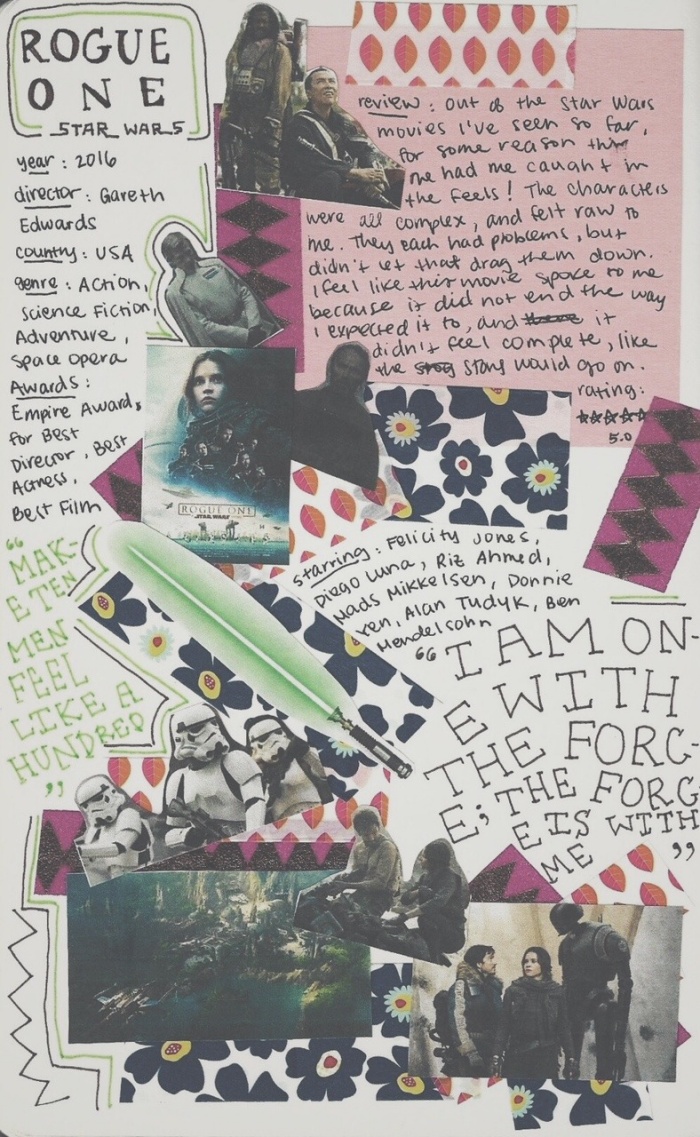 ROGUE
ONE
STAR WARS
year : 2016
director : Gareth
Edwards
country : USA
genre : Action,
Science Fiction,
Adventure,
Space opera
Awards :
Empire Awards
for Best
Director, Best
Actress,
Best Film
review : out of the Star Wars
movies I've seen so far,
for some reason this
one had me caught in
the feels! The characters
were all complex, and felt raw to
me. They each had problems, but
didn't let that drag them down.
I feel like this movie spoke to me
because it did not end the way
I expected it to, and it
didn't feel complete, like
the story would go on.
rating:
5.0
ROGUE ONE
STAR WARS
starring : Felicity Jones,
Diego Luna, Riz Ahmed,
Mads Mikkelsen, Donnie
Yen, Alan Tudyk, Ben
Mendelsohn
“MAK-
E TEN
MEN
FEEL
LIKE A
HUNDRED
”
“I AM ON-
E WITH
THE FORC-
E; THE FORC
E IS WITH
ME ”